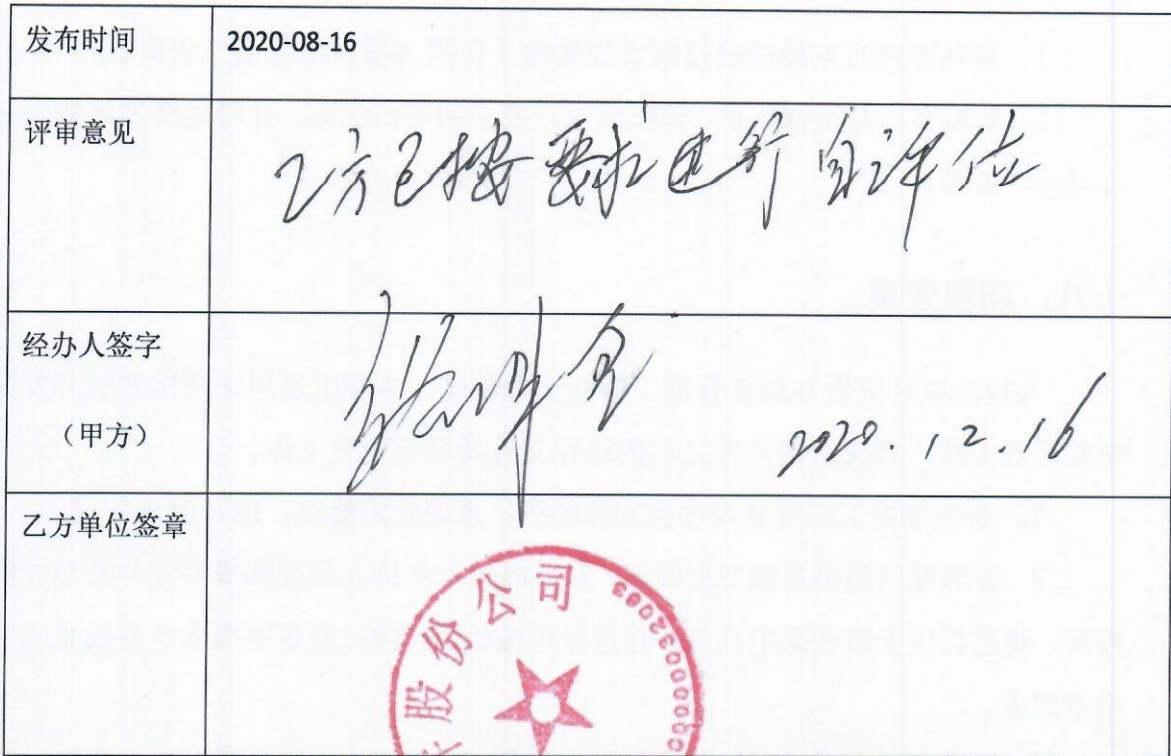 发布时间 2020-08-16
评审意见 乙方已按要求进行自评估
经办人签字
（甲方） 2020.12.16
乙方单位签章
股份公司